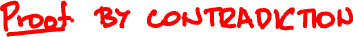 Proof BY CONTRADICTION